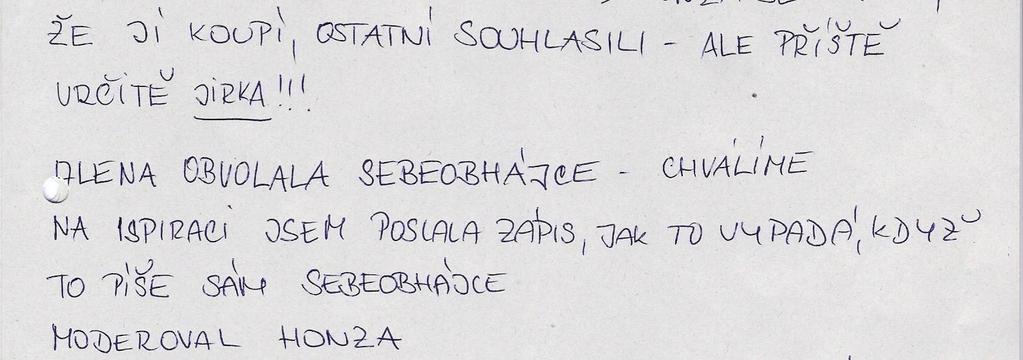 ŽE JÍ KOUPÍ, OSTATNÍ SOUHLASILI - ALE PŘÍŠTĚ
URČITĚ JIRKA!!!
ALENA OBVOLALA SEBEOBHÁJCE - CHVÁLÍME
NA ISPIRACI JSEM POSLALA ZÁPIS, JAK TO VYPADÁ, KDYŽ
TO PÍŠE SÁM SEBEOBHÁJCE
MODEROVAL HONZA